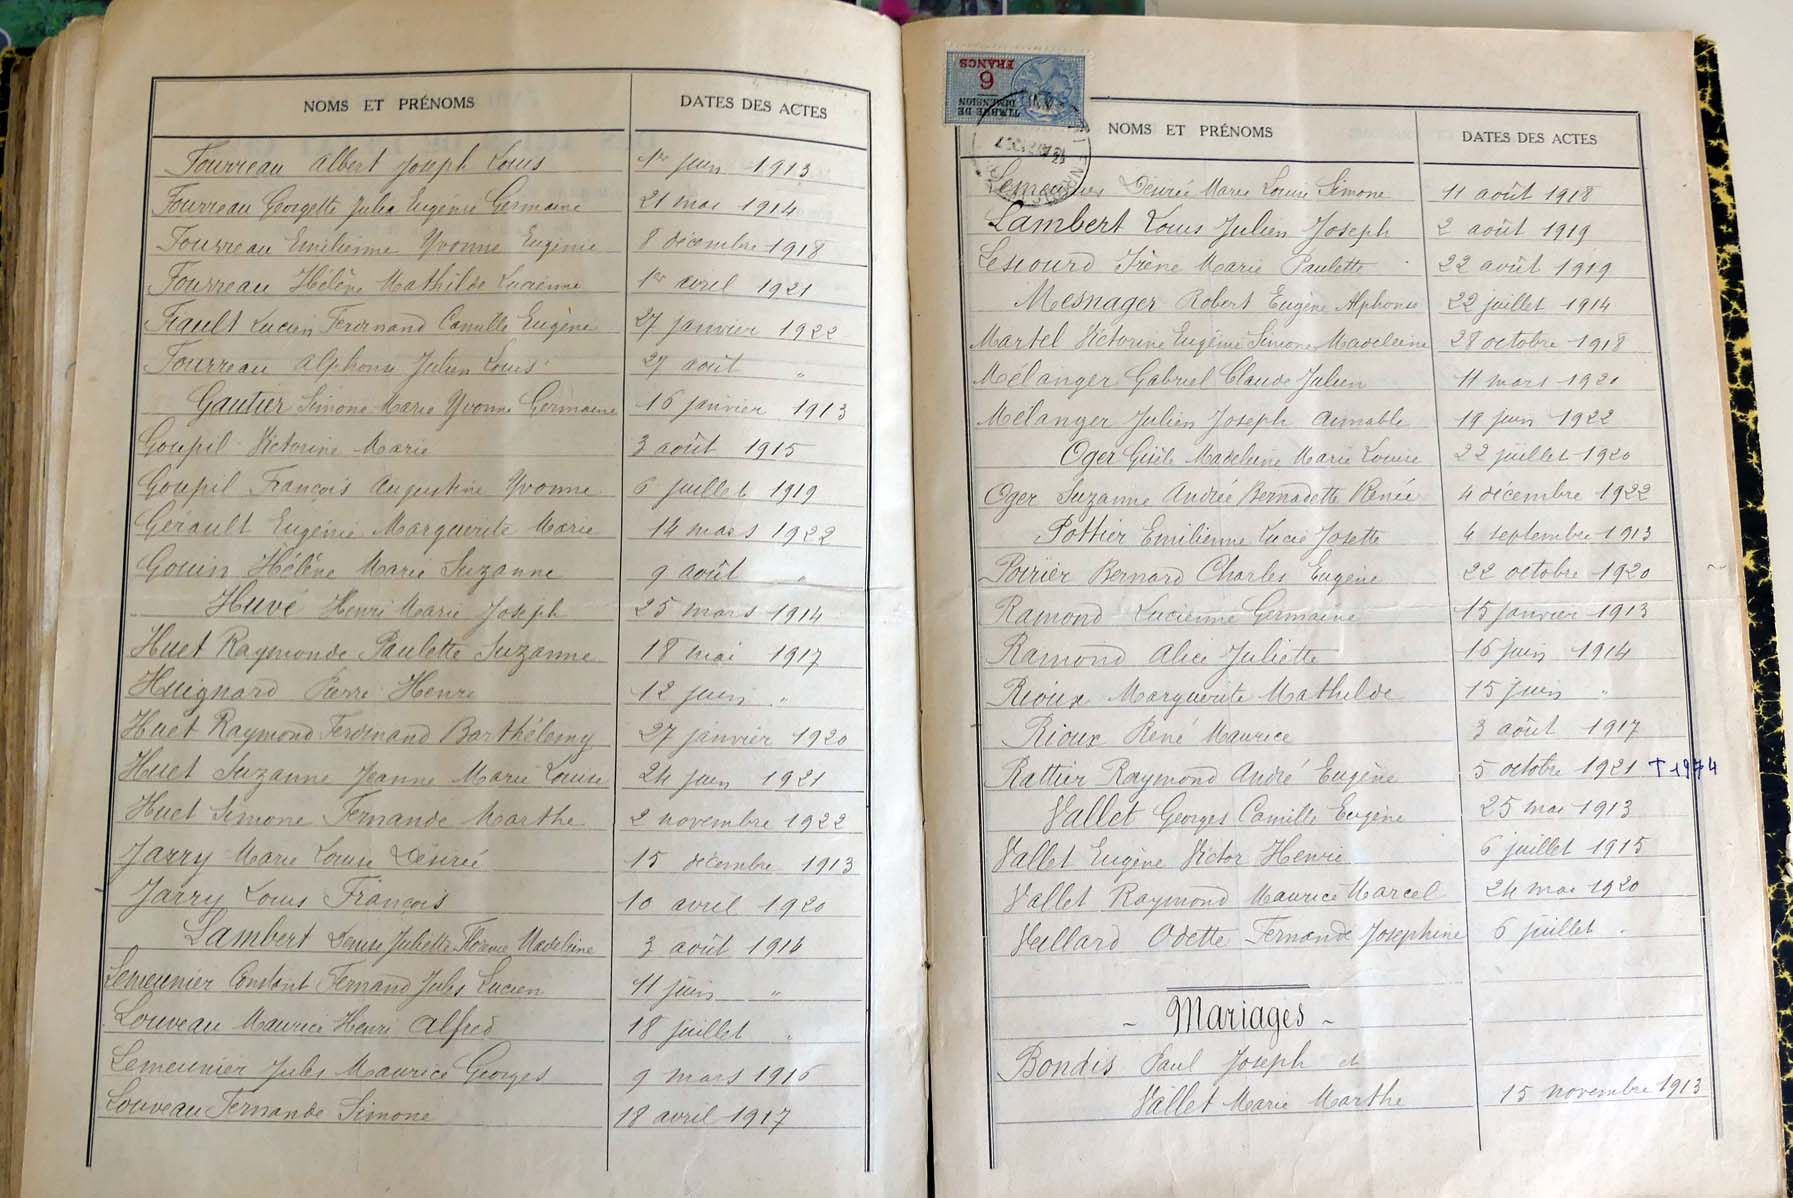 NOMS ET PRÉNOMS DATES DES ACTES
Fourreau Albert Joseph Louis 1er juin 1913
Fourreau Georgette Julia Eugénie Germaine 21 mai 1914
Fourreau Emilienne Yvonne Eugénie 8 décembre 1918
Fourreau Hélène Mathilde Lucienne 1er avril 1921
Fiault Lucien Ferdinand Camille Eugène 27 janvier 1922
Fourreau Alphonse Julien Louis 27 août "
Gautier Simone Marie Yvonne Germaine 16 janvier 1913
Goupil Victorine Marie 3 août 1915
Goupil François Augustine Yvonne 6 juillet 1919
Gérault Eugénie Marguerite Marie 14 mars 1922
Gouin Hélène Marie Suzanne 9 août "
Huvé Henri Marie Joseph 25 mars 1914
Huet Raymonde Paulette Suzanne 18 mai 1917
Huignard Pierre Henri 12 juin "
Huet Raymond Ferdinand Barthélemy 27 janvier 1920
Huet Suzanne Jeanne Marie Louise 24 juin 1921
Huet Simone Fernande Marthe 2 novembre 1922
Jarry Marie Louise Désirée 15 décembre 1913
Jarry Louis François 10 avril 1920
Lambert Denise Juliette Florence Madeleine 3 août 1914
Lemeunier Constant Fernand Jules Lucien 11 juin "
Louveau Maurice Henri Alfred 18 juillet "
Lemeunier Jules Maurice Georges 9 mars 1916
Louveau Fernande Simone 18 avril 1917
6 FRANCS
TIMBRE DE DIMENSION
NOMS ET PRÉNOMS DATES DES ACTES
Lemeunier Désirée Marie Louise Simone 11 août 1918
Lambert Louis Julien Joseph 2 août 1919
Lesiourd Irène Marie Paulette 22 août 1919
Mesnager Robert Eugène Alphonse 22 juillet 1914
Martel Victorine Eugénie Simone Madeleine 28 octobre 1918
Mélanger Gabriel Claude Julien 11 mars 1920
Mélanger Julien Joseph Aimable 19 juin 1922
Oger Gisèle Madeleine Marie Louise 22 juillet 1920
Oger Suzanne Andrée Bernadette Renée 4 décembre 1922
Pottier Emilienne Lucie Josette 4 septembre 1913
Poirier Bernard Charles Eugène 22 octobre 1920
Ramond Lucienne Germaine 15 janvier 1913
Ramond Alice Juliette 16 juin 1914
Rioux Marguerite Mathilde 15 juin "
Rioux René Maurice 3 août 1917
Rattier Raymond André Eugène 5 octobre 1921 † 1974
Vallet Georges Camille Eugène 25 mai 1913
Vallet Eugène Victor Henri 6 juillet 1915
Vallet Raymond Maurice Marcel 24 mai 1920
Vallard Odette Fernande Joséphine 6 juillet "
- Mariages -
Bondis Paul Joseph et
Vallet Marie Marthe 15 novembre 1913